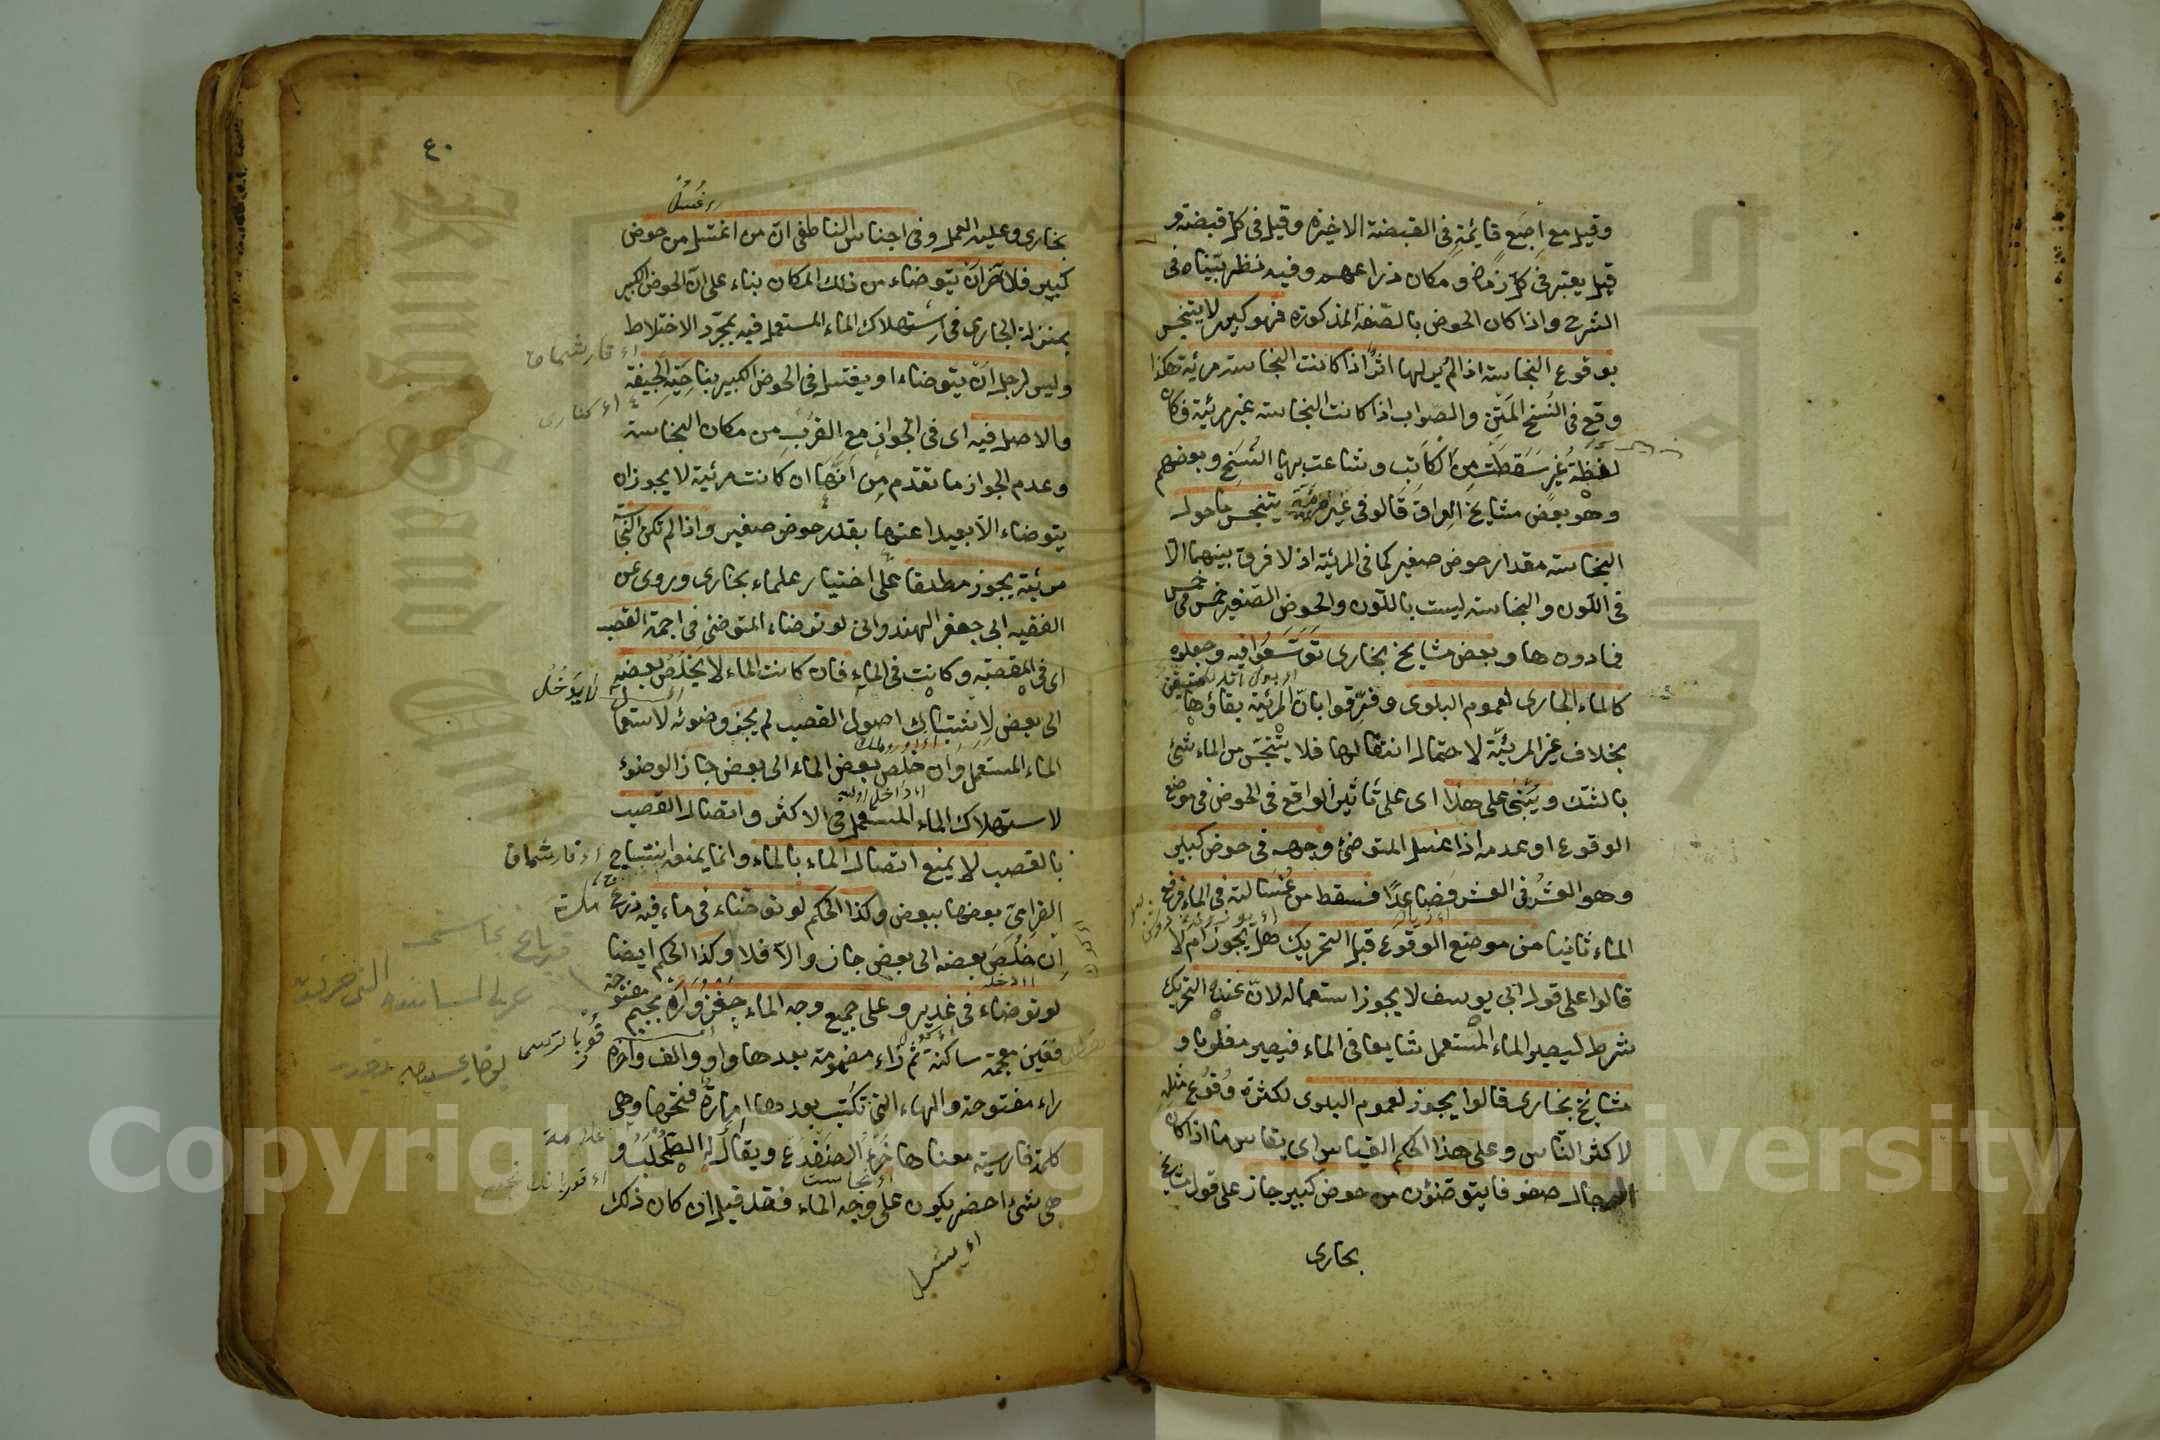 وقيل مع اصبع قائمة في القبضة الاخيرة وقيل في كل قبضة و
قيل يعتبر في كل زمان و مكان ذراعهم وفيه نظر بيناه في
الشرح واذا كان الحوض بالصفة المذكورة فهو كبير لا يتنجس
بوقوع النجاسة اذا لم ير لها اثر اذا كانت النجاسة مرئية هكذا
وقع في النسخ المتن والصواب اذا كانت النجاسة غير مرئية وكان
لفظة غير سقطت من الكاتب و شاعت بها النسخ وبعضهم
وهو بعض مشايخ العراق قالو في غير مرئية يتنجس ما حول
النجاسة مقدار حوض صغير كما في المرئية اذ لا فرق بينهما الا
في اللون والنجاسة ليست باللون والحوض الصغير خمس في خمس
فما دونها وبعض مشايخ بخارى توسعوا فيه وجعلوه
كالماء الجاري لعموم البلوى وفرقوا بان المرئية بقاؤها متيقن
بخلاف غير المرئية لاحتمال انتقالها فلا يتنجس من الماء شئ
بالشك ويبتنى على هذا اى على تأثير الواقع في الحوض في موضع
الوقوع او عدمه اذا غسل المتوضئ وجهه في حوض كبير
وهو العشر في العشر فصاعدا فسقط من غسالته في الماء فرفع
الماء ثانيا من موضع الوقوع قبل التحريك هل يجوز ام لا
قالوا على قول ابي يوسف لا يجوز استعماله لان عنده التحريك
شرط ليصير الماء المستعمل شايعا في الماء فيصير مغلوبا و
مشايخ بخارى قالوا يجوز لعموم البلوى لكثرة وقوع مثله
لاكثر الناس وعلى هذا الحكم القياس اى يقاس ما اذا كان
الرجال صفوفا يتوضئون من حوض كبير جاز على قول مشايخ
بخارى
٤٠
غسل
بخارى وعليه العمل وفي اجناس الناطفي ان من اغتسل من حوض
كبير فلاخران يتوضاء من ذلك المكان بناء على ان الحوض الكبير
بمنزلة الجارى في استهلاك الماء المستعمل فيه بمجرد الاختلاط
وليس لرجل ان يتوضاء او يغتسل في الحوض الكبير بناحية الجيفة
والاصل فيه اى في الجواز مع القرب من مكان النجاسة
وعدم الجواز ما تقدم من انها ان كانت مرئية لا يجوز ان
يتوضاء الا بعيدا عنها بقدر حوض صغير واذا لم تكن النجاسة
مرئية يجوز مطلقا على اختيار علماء بخارى وروى عن
الفقيه ابى جعفر الهندوانى لو توضاء المتوضئ في اجمة القصب
اى في المقصبة وكانت في الماء فان كانت الماء لا يخلص بعضه
لا يدخل
الى بعض لاشتباك اصول القصب لم يجز وضوئه لاستعما
الماء المستعمل وان خلص بعض الماء الى بعض جاز الوضوء
لاستهلاك الماء المستعمل في الاكثر واتصال القصب
بالقصب لا يمنع اتصال الماء بالماء وانما يمنع
بعضها ببعض وكذا الحكم لو توضاء في ماء فيه زرع
ان خلص بعضه الى بعض جاز والا فلا وكذا الحكم ايضا
لو توضاء في غدير وعلى جميع وجه الماء جغزواره بجيم مفتوحة
فغين معجمة ساكنة ثم زاء مضمومة بعدها واو والف واخره
راء مفتوحة والهاء التي تكتب بعدها امارة فتحها وهي
كلمة فارسية معناها خرء الضفدع ويقال له الطحلب و
هى شئ اخضر يكون على وجه الماء فقد قيل ان كان ذلك
Copyright © King Saud University